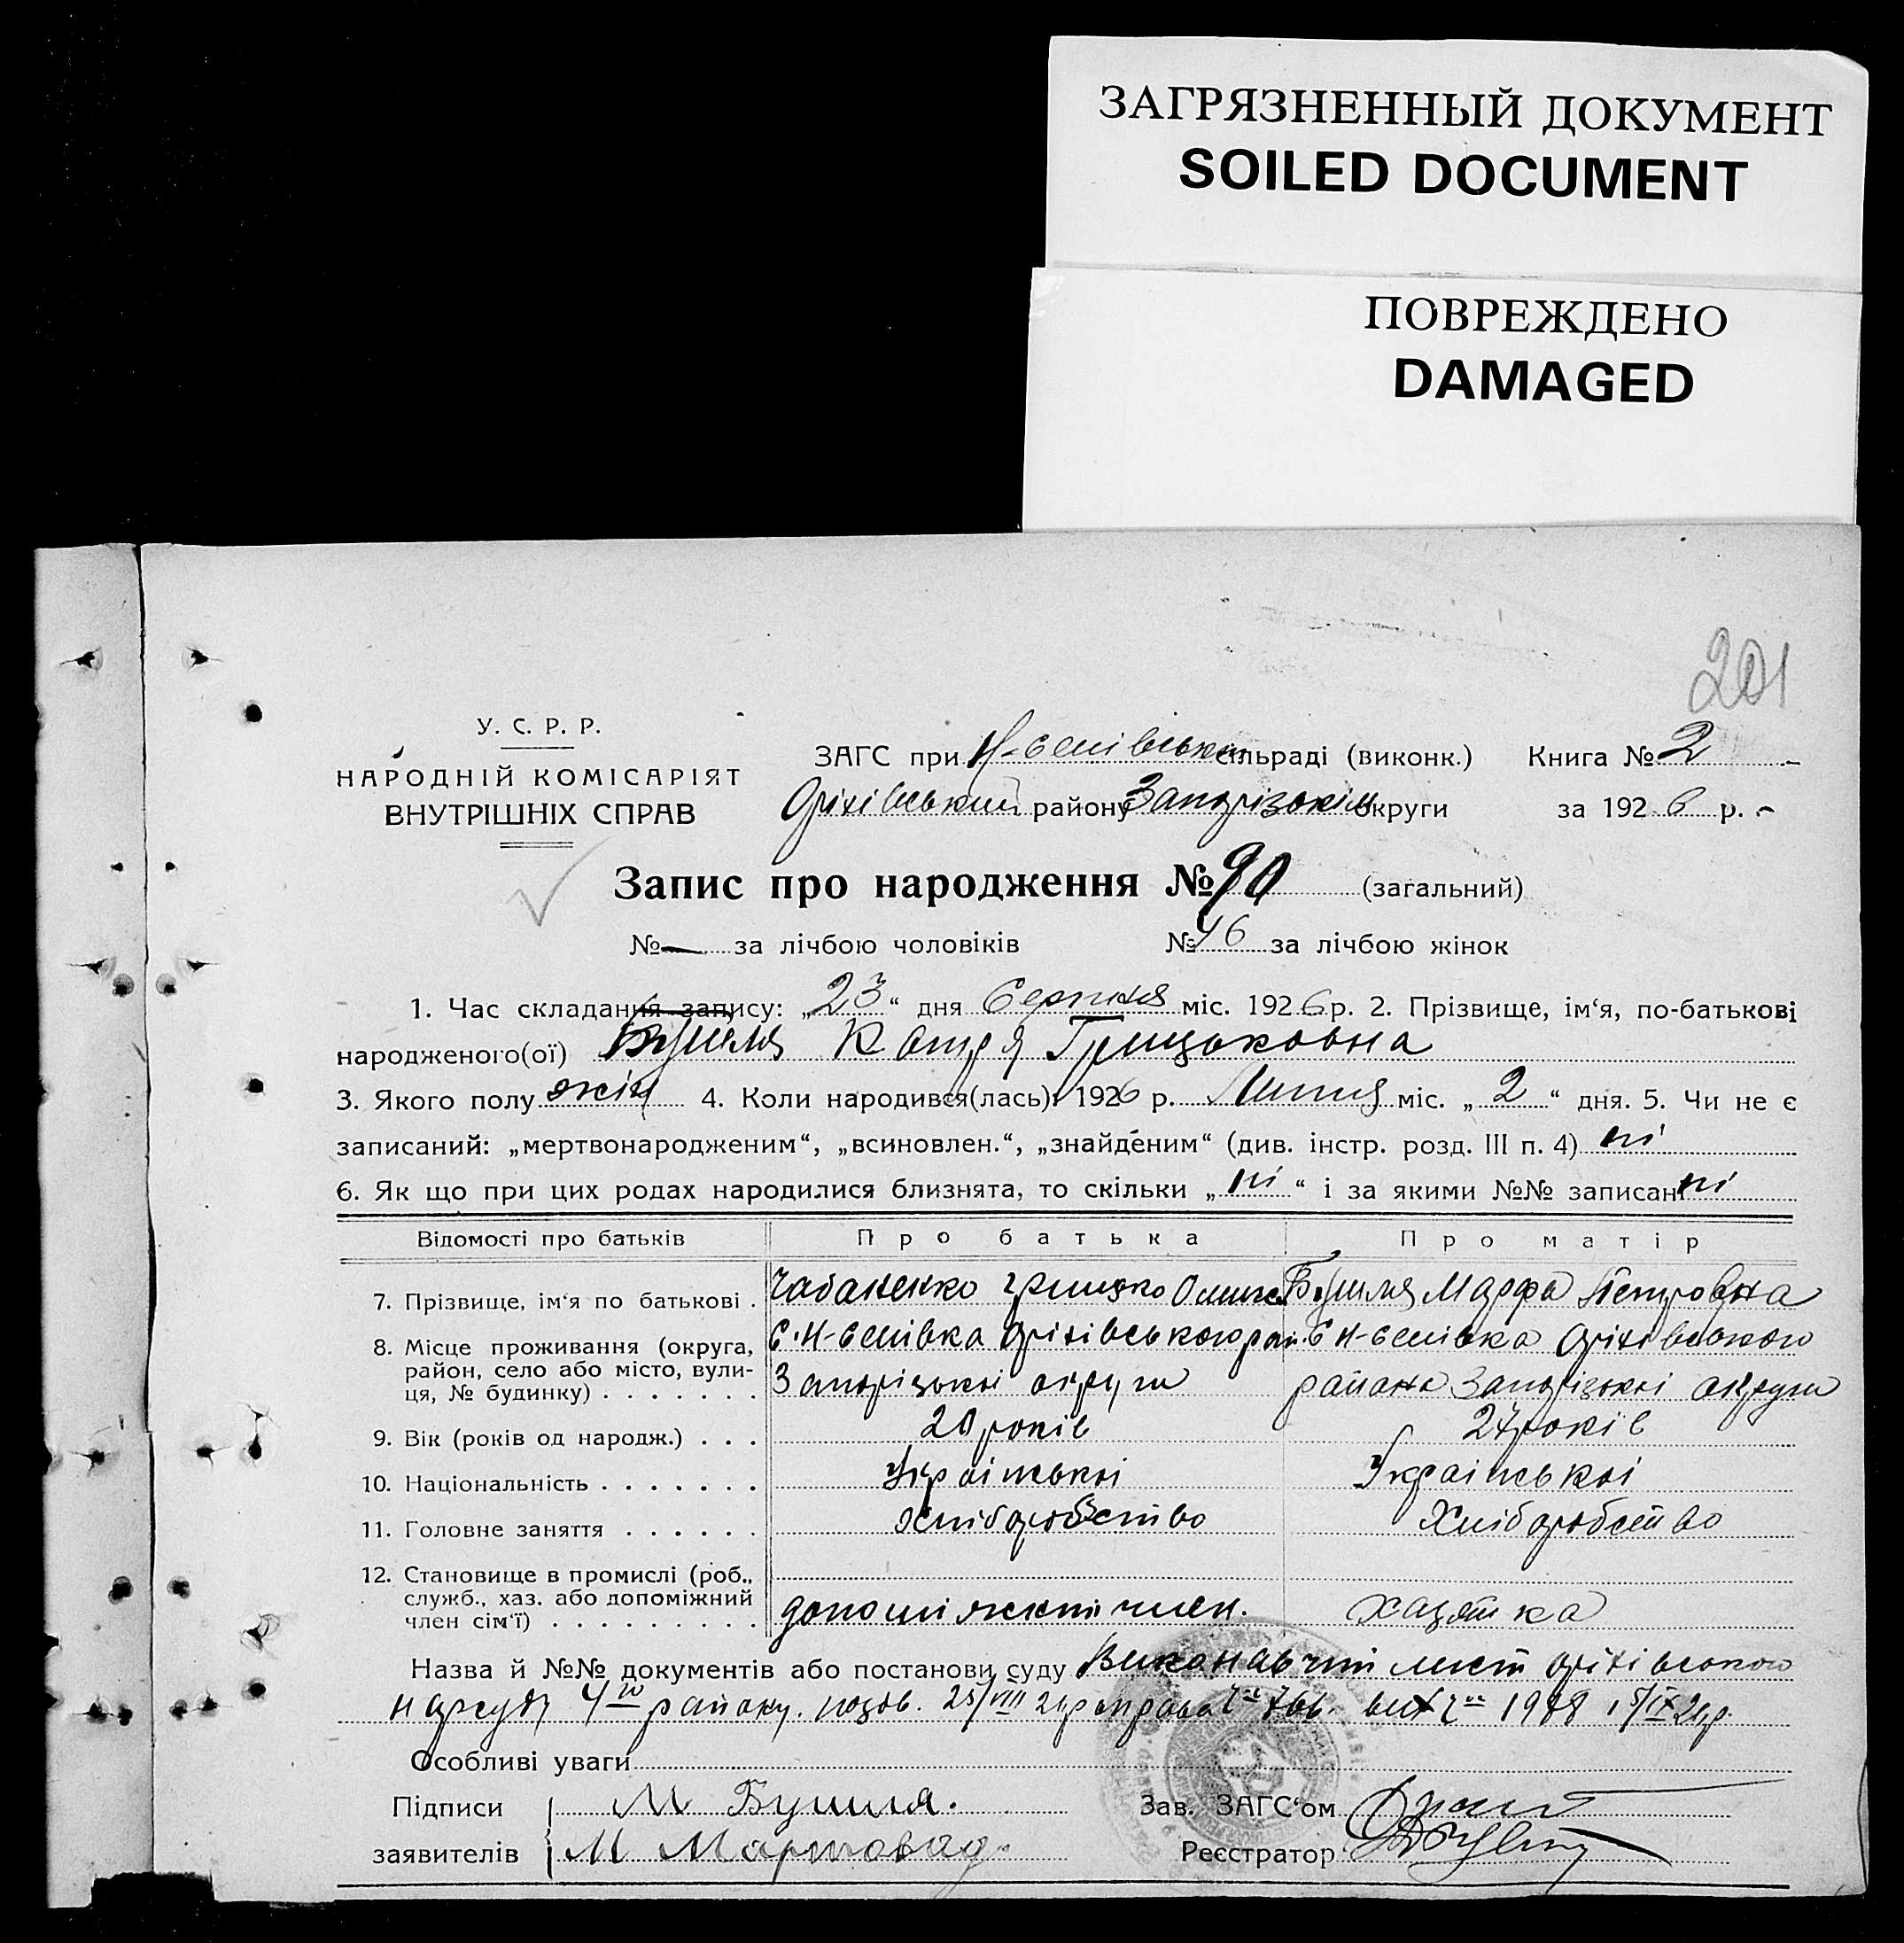 ЗАГРЯЗНЕННЫЙ ДОКУМЕНТ
SOILED DOCUMENT
ПОВРЕЖДЕНО
DAMAGED
201
У. С. Р. Р.
НАРОДНІЙ КОМІСАРІЯТ
ВНУТРІШНІХ СПРАВ
ЗАГС при сільраді (виконк.) Книга № 2
Оріхівський району Запорізькій округи за 1926 р.
Запис про народження № 90 (загальний)
№ — за лічбою чоловіків № 46 за лічбою жінок
1. Час складання запису: „23“ дня Серпня міс. 1926 р. 2. Прізвище, ім‘я, по-батькові
народженого(ої) Катря Грицьковна
3. Якого полу жін 4. Коли народився(лась): 1926 р. Липня міс. „2“ дня. 5. Чи не є
записаний: „мертвонародженим“, „всиновлен.“, „знайденим“ (див. інстр. розд. III п. 4) ні
6. Як що при цих родах народилися близнята, то скільки „ні“ і за якими №№ записані ні
Відомості про батьків Про батька Про матір
7. Прізвище, ім‘я по батькові . Чабаненко Грицько Марфа Петровна
8. Місце проживання (округа, район, село або місто, вулиця, № будинку) . . . . . . .
С. Н-Єлнівка Оріхівського рай. С Н-Єлнівка Оріхівського
Запорізької округи района Запорізької округи
9. Вік (років од народж.) . . . 20 років 24 років
10. Національність . . . . . . . Української Української
11. Головне заняття . . . . . . Хліборобство Хліборобство
12. Становище в промислі (роб., служб., хаз. або допоміжний член сім‘ї) . . . . . . . . . член. хазяйка
Назва й №№ документів або постанови суду Виконавчий лист Оріхівського
нарсуду 4го району. 25/VIII справа
Особливі уваги
Підписи М Бушля.
заявителів М
Зав. ЗАГС‘ом
Реєстратор